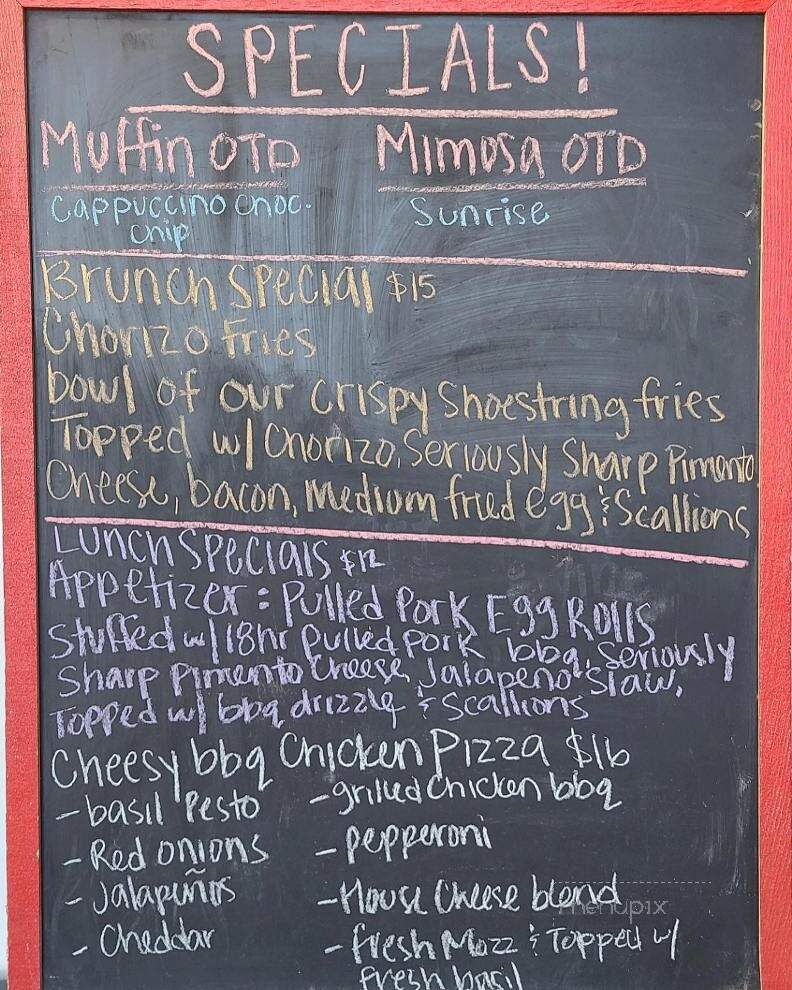 SPECIALS!
Muffin OTD
Mimosa OTD
Cappuccino Choc.
Chip
Sunrise
Brunch Special $15
Chorizo Fries
bowl of our crispy Shoestring fries
Topped w/ Chorizo, Seriously Sharp Pimento
Cheese, bacon, Medium fried egg & Scallions
Lunch Specials $12
Appetizer: Pulled Pork Egg Rolls
Stuffed w/ 18hr pulled pork bbq, Seriously
Sharp Pimento Cheese, Jalapeno Slaw,
Topped w/ bbq drizzle & Scallions
Cheesy bbq Chicken Pizza $16
- basil Pesto
- grilled Chicken bbq
- Red onions
- pepperoni
- Jalapeños
- House Cheese blend
- Cheddar
- fresh Mozz & Topped w/
fresh basil
menupix